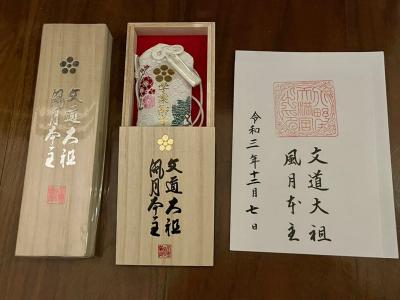 文道大祖
風月本主
学業
文道大祖
風月本主
文道大祖
風月本主
令和三年十二月七日